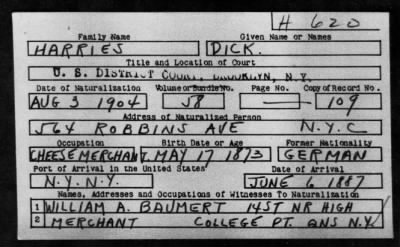 H 620
Family Name Given Name or Names
HARRIES DICK.
Title and Location of Court
U. S. DISTRICT COURT, BROOKLYN, N.Y.
Date of Naturalization Volume or Bundle No. Page No. Copy of Record No.
AUG 3 1904 58 — 109
Address of Naturalized Person
564 ROBBINS AVE N.Y.C
Occupation Birth Date or Age Former Nationality
CHEESE MERCHANT. MAY 17 1873 GERMAN
Port of Arrival in the United States Date of Arrival
N.Y. N.Y. JUNE 6 1887
Names, Addresses and Occupations of Witnesses To Naturalization
1 WILLIAM A. BAUMERT 14ST NR HIGH
2 MERCHANT COLLEGE PT. QNS N.Y.